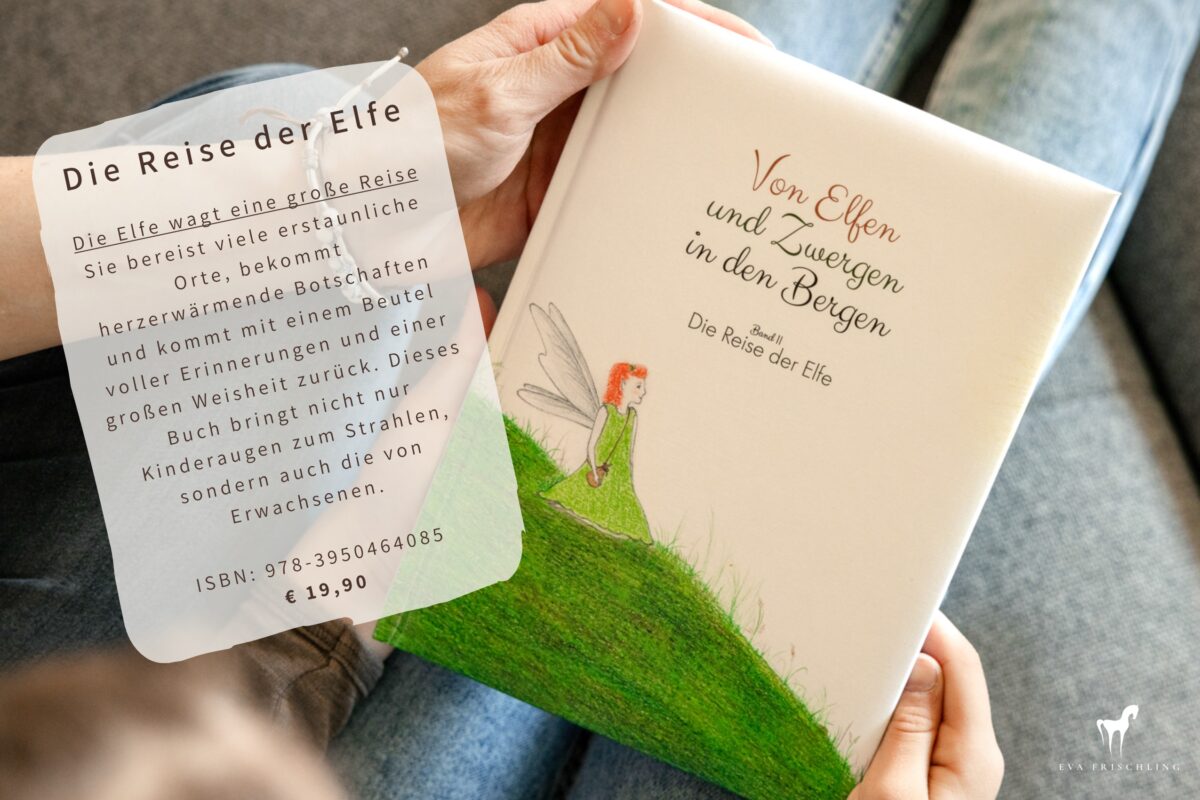 Die Reise der Elfe
Die Elfe wagt eine große Reise
Sie bereist viele erstaunliche
Orte, bekommt
herzerwärmende Botschaften
und kommt mit einem Beutel
voller Erinnerungen und einer
großen Weisheit zurück. Dieses
Buch bringt nicht nur
Kinderaugen zum Strahlen,
sondern auch die von
Erwachsenen.
ISBN: 978-3950464085
€ 19,90
Von Elfen
und Zwergen
in den Bergen
Band II
Die Reise der Elfe
EVA FRISCHLING